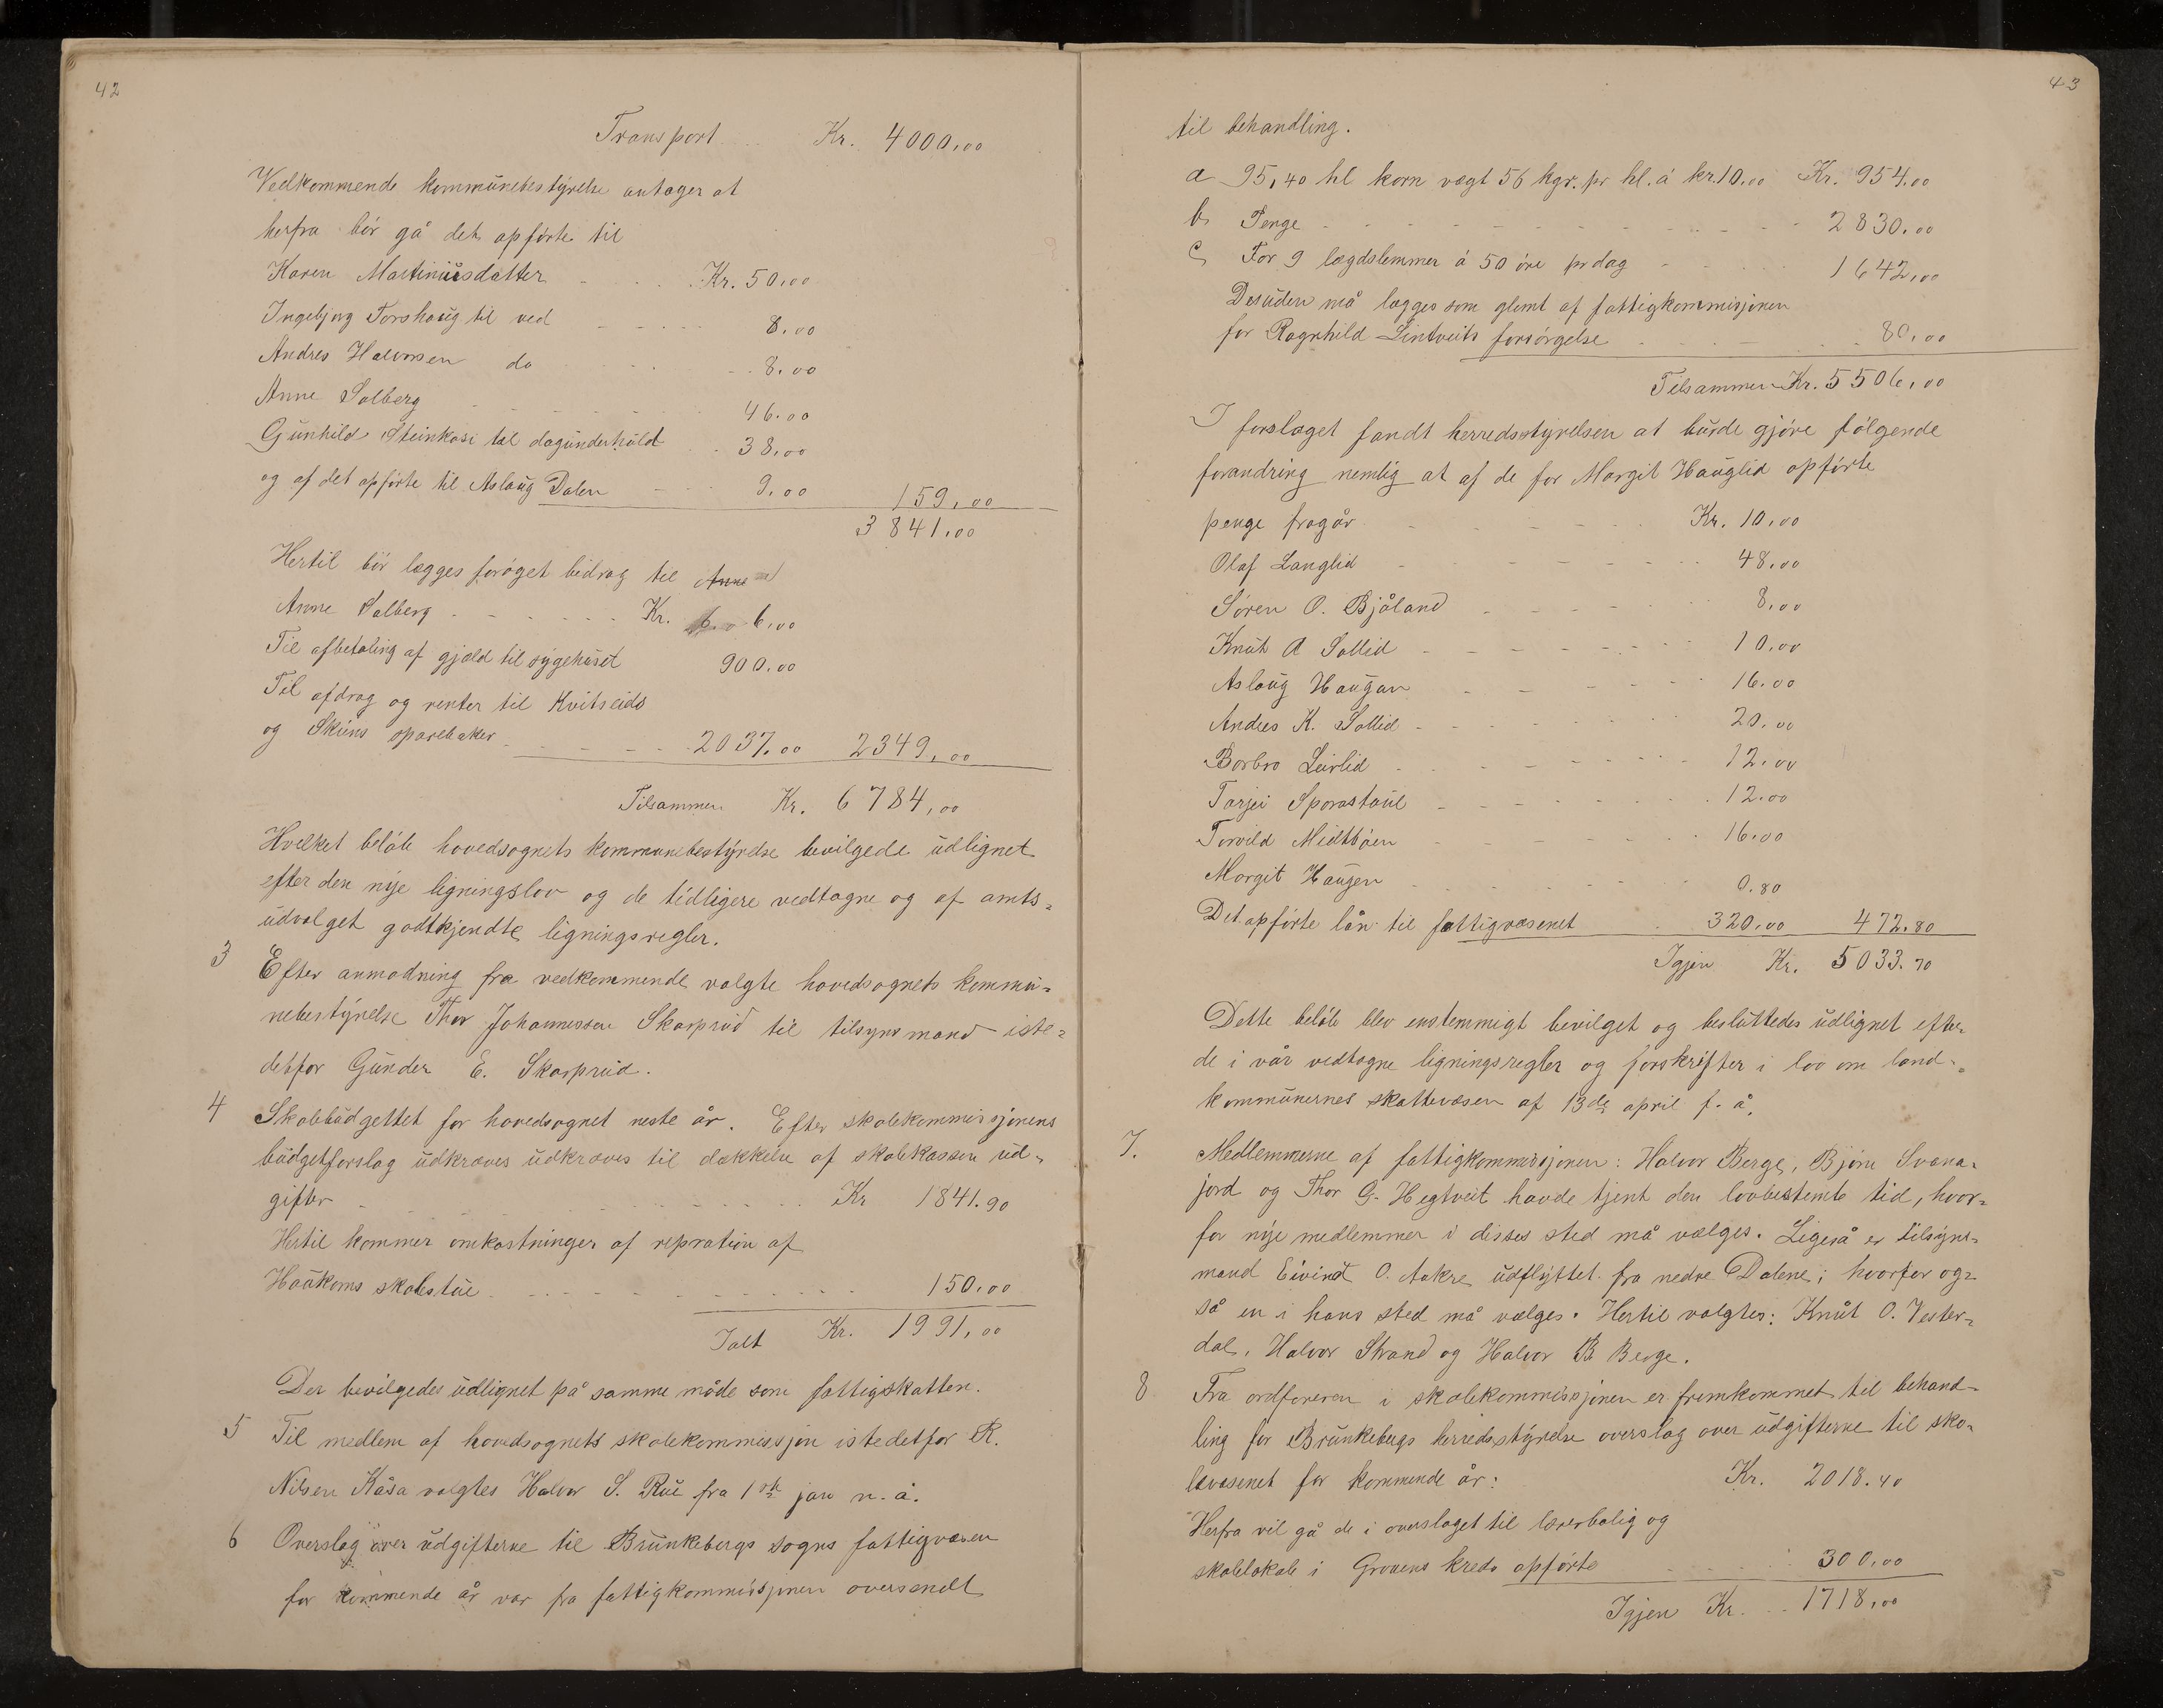 42
Transport Kr. 4000,00
Vedkommende kommünebestÿrelse antager at
herfra bör gå det opförte til
Karen Martiniüsdatter Kr. 50,00
Ingebjørg Torshaüg til ved 8,00
Andres Halvorsen do 8,00
Anne Solberg 46,00
Günhild Steinkasi til dagünderhold 38,00
og af det opførte til Aslaüg Dalen 9,00 159,00
3841,00
Hertil bör lægges forøget bidrag til Anne
Anne Solberg Kr. 6,00
Til afbetaling af gjæld til sÿgehüset 900,00
Til afdrag og renter til Kvitseids
og Skiens sparebaker 2037,00 2349,00
Tilsammen Kr. 6784,00
Hvilket beløb hovedsognets kommunebestÿrelse bevilgede üdlignet
efter den nÿe ligningslov og de tidligere vedtagne og af amts=
üdvalget godtkjendte ligningsregler.
3 Efter anmodning fra vedkommende valgte hovedsognets kommü=
nebestÿrelse Thor Johannessen Skarprüd til tilsynsmand iste=
detfor Günder E. Skarprüd.
4 Skolebüdgettet for hovedsognet neste år. Efter skolekommissjonens
büdgetforslag üdkræves üdkræves til dækkelse af skolekassen üd=
gifter Kr 1841.90
Hertil kommer omkostninger af repration af
Haükoms skolestüe 150,00
Ialt Kr. 1991,00
Der bevilgedes üdlignet på samme måde som fattigskatten.
5 Til medlem af hovedsognets skolekommissjon istedetfor R.
Nilsen Kåsa valgtes Halvor S. Rüi fra 1ste jan n. å.
6 Overslag over üdgifterne til Brünkebergs sogns fattigvæsen
for kommende år var fra fattigkommissjonen oversendt
43
til behandling.
a 95,40 hl korn vægt 56 kgr. pr hl. á kr. 10,00 Kr. 954,00
b Penge 2830,00
c For 9 lægdslemmer á 50 öre pr dag 1642,00
Desüden må lægges som glemt af fattigkommisjonen
for Ragnhild Lintveits forsörgelse 80,00
Tilsammen Kr. 5506,00
I forslaget fandt herredsstÿrelsen at bürde gjöre fölgende
forandring nemlig at af de for Margit Haüglid opförte
penge fragår Kr. 10,00
Olaf Langlid 48,00
Sören O. Bjåland 8,00
Knüt A Sollid 10,00
Aslaüg Haügan 16,00
Andres K. Sollid 20,00
Borbro Leirlid 12,00
Tarjei Sporastaül 12,00
Torvild Midtböen 16,00
Margit Haügen 0.80
Det opförte lån til fattigvæsenet 320,00 472.80
Igjen Kr. 5033.70
Dette beløb blev enstemmigt bevilget og beslüttedes üdlignet efter
de i vår vedtagne ligningsregler og forskrifter i lov om land=
kommünernes skattevæsen af 13de april f. å.
7. Medlemmerne af fattigkommissjonen: Halvor Berge, Bjørn Svana=
jord og Thor G. Hegtveit havde tjent den lovbestemte tid, hvor=
for nÿe medlemmer i disses sted må vælges. Ligeså er tilsÿns=
mand Eivind O. Aakre üdflÿttet fra nedre Dalene; hvorfor og=
så en i hans sted må vælges. Hertil valgtes: Knüt O. Vester=
dal, Halvor Strand og Halvor B. Berge.
8 Fra ordføreren i skolekommissjonen er fremkommet til behand=
ling for Brünkebergs herredsstÿrelse overslag over üdgifterne til sko=
levæsenet for kommende år: Kr. 2018.40
Herfra vil gå de i overslaget til lærerbolig og
skolelokale i Grovens kreds opförte 300,00
Igjen Kr. 1718,00